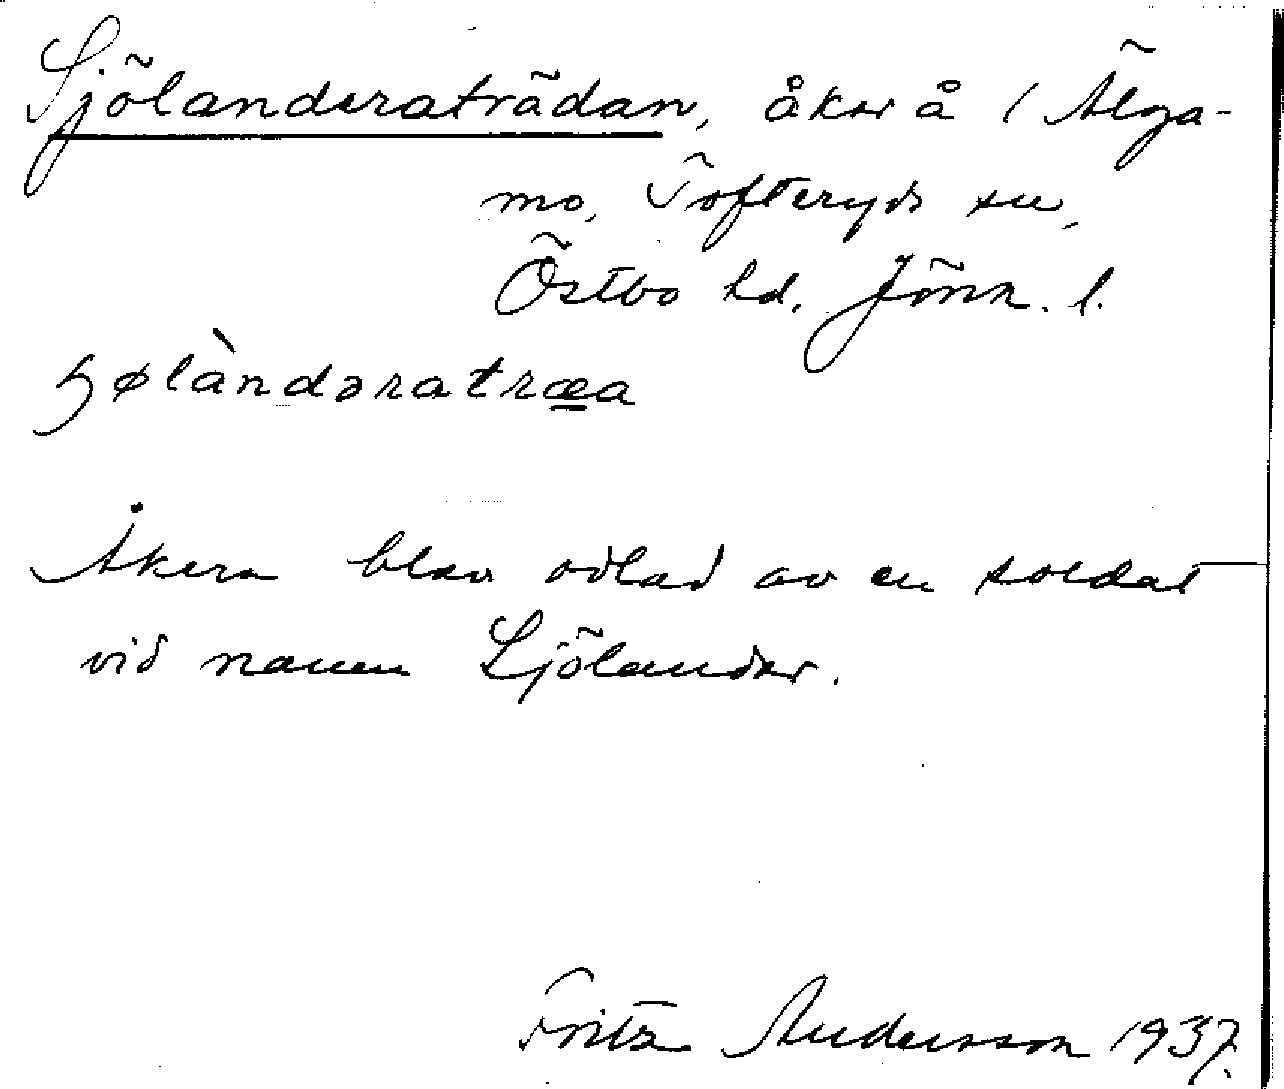 Sjölanderaträdan, åker å 1 Älga-
mo, Tofteryds sn,
Östbo hd. Jönk. l.
ɧølàndəratræa
Åkern blev odlad av en soldat
vid namn Sjölander.
Fritz Andersson 1937.